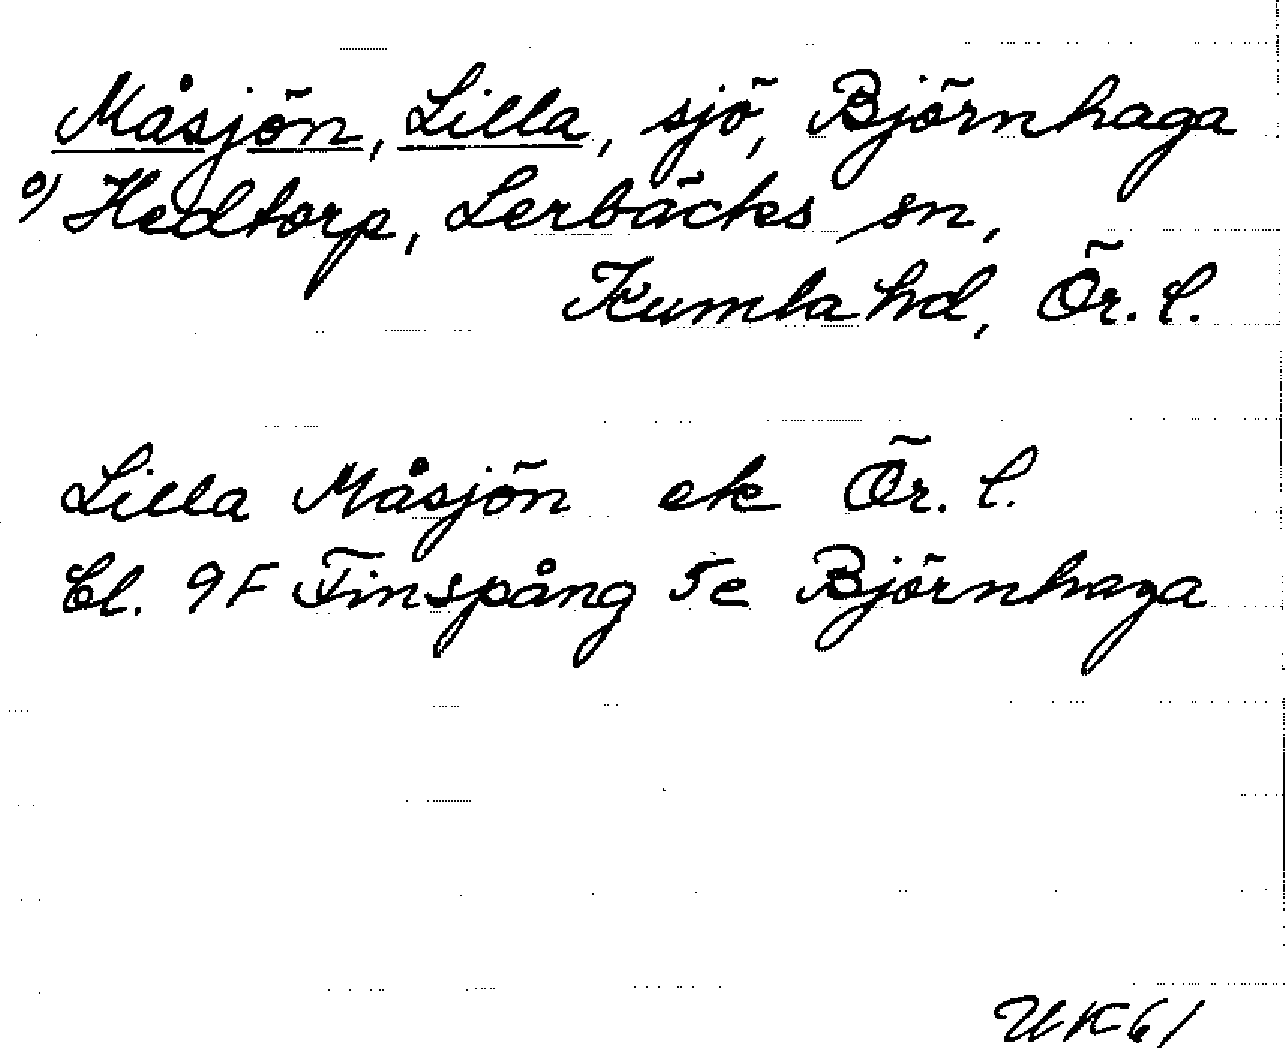 Måsjön, Lilla, sjö, Björnhaga
o/ Hedtorp, Lerbäcks sn,
Kumla hd, Ör. l.
Lilla Måsjön ek Ör. l.
Bl. 9F Finspång 5e Björnhaga
UK61